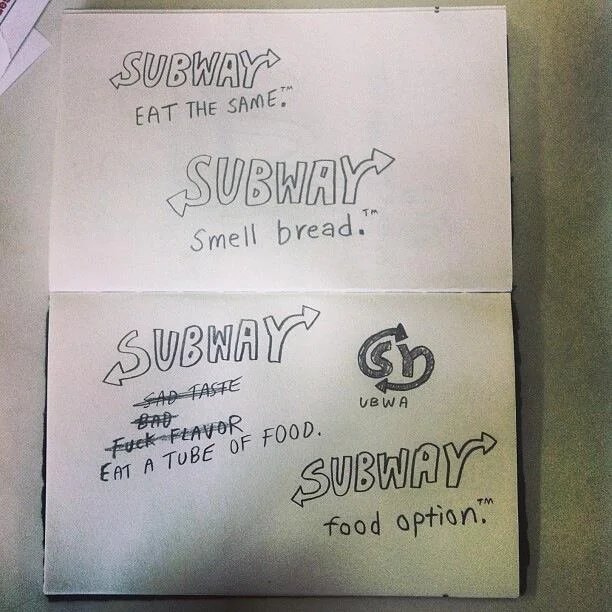 SUBWAY
EAT THE SAME.™
SUBWAY
smell bread.™
SUBWAY
SAD TASTE
BAD
FUCK FLAVOR
EAT A TUBE OF FOOD.
SY
UBWA
SUBWAY
food option.™